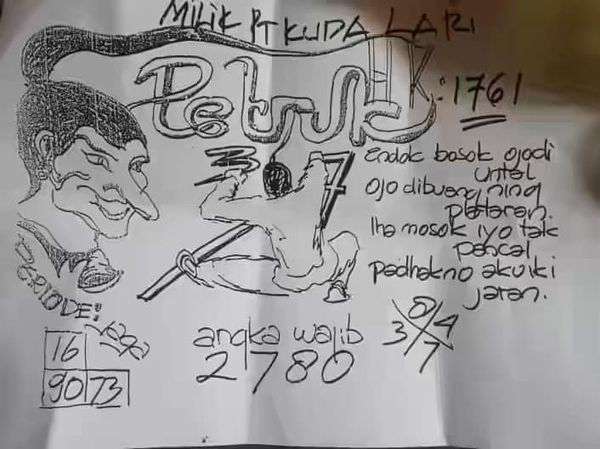 MILIK PT KUDA LARI
Petruk
HK: 1761
3 7
endok bosok ojodi
untal
ojo dibuang ning
plataran.
lha mosok iyo tak
pancal
padhakno aku iki
jaran.
PERIODE:
16
90 73
angka wajib
2780
8
3 4
7